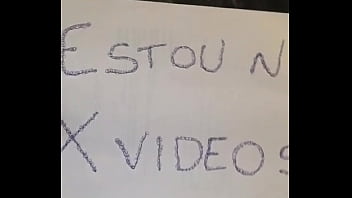 ESTOU N
XVIDEOS